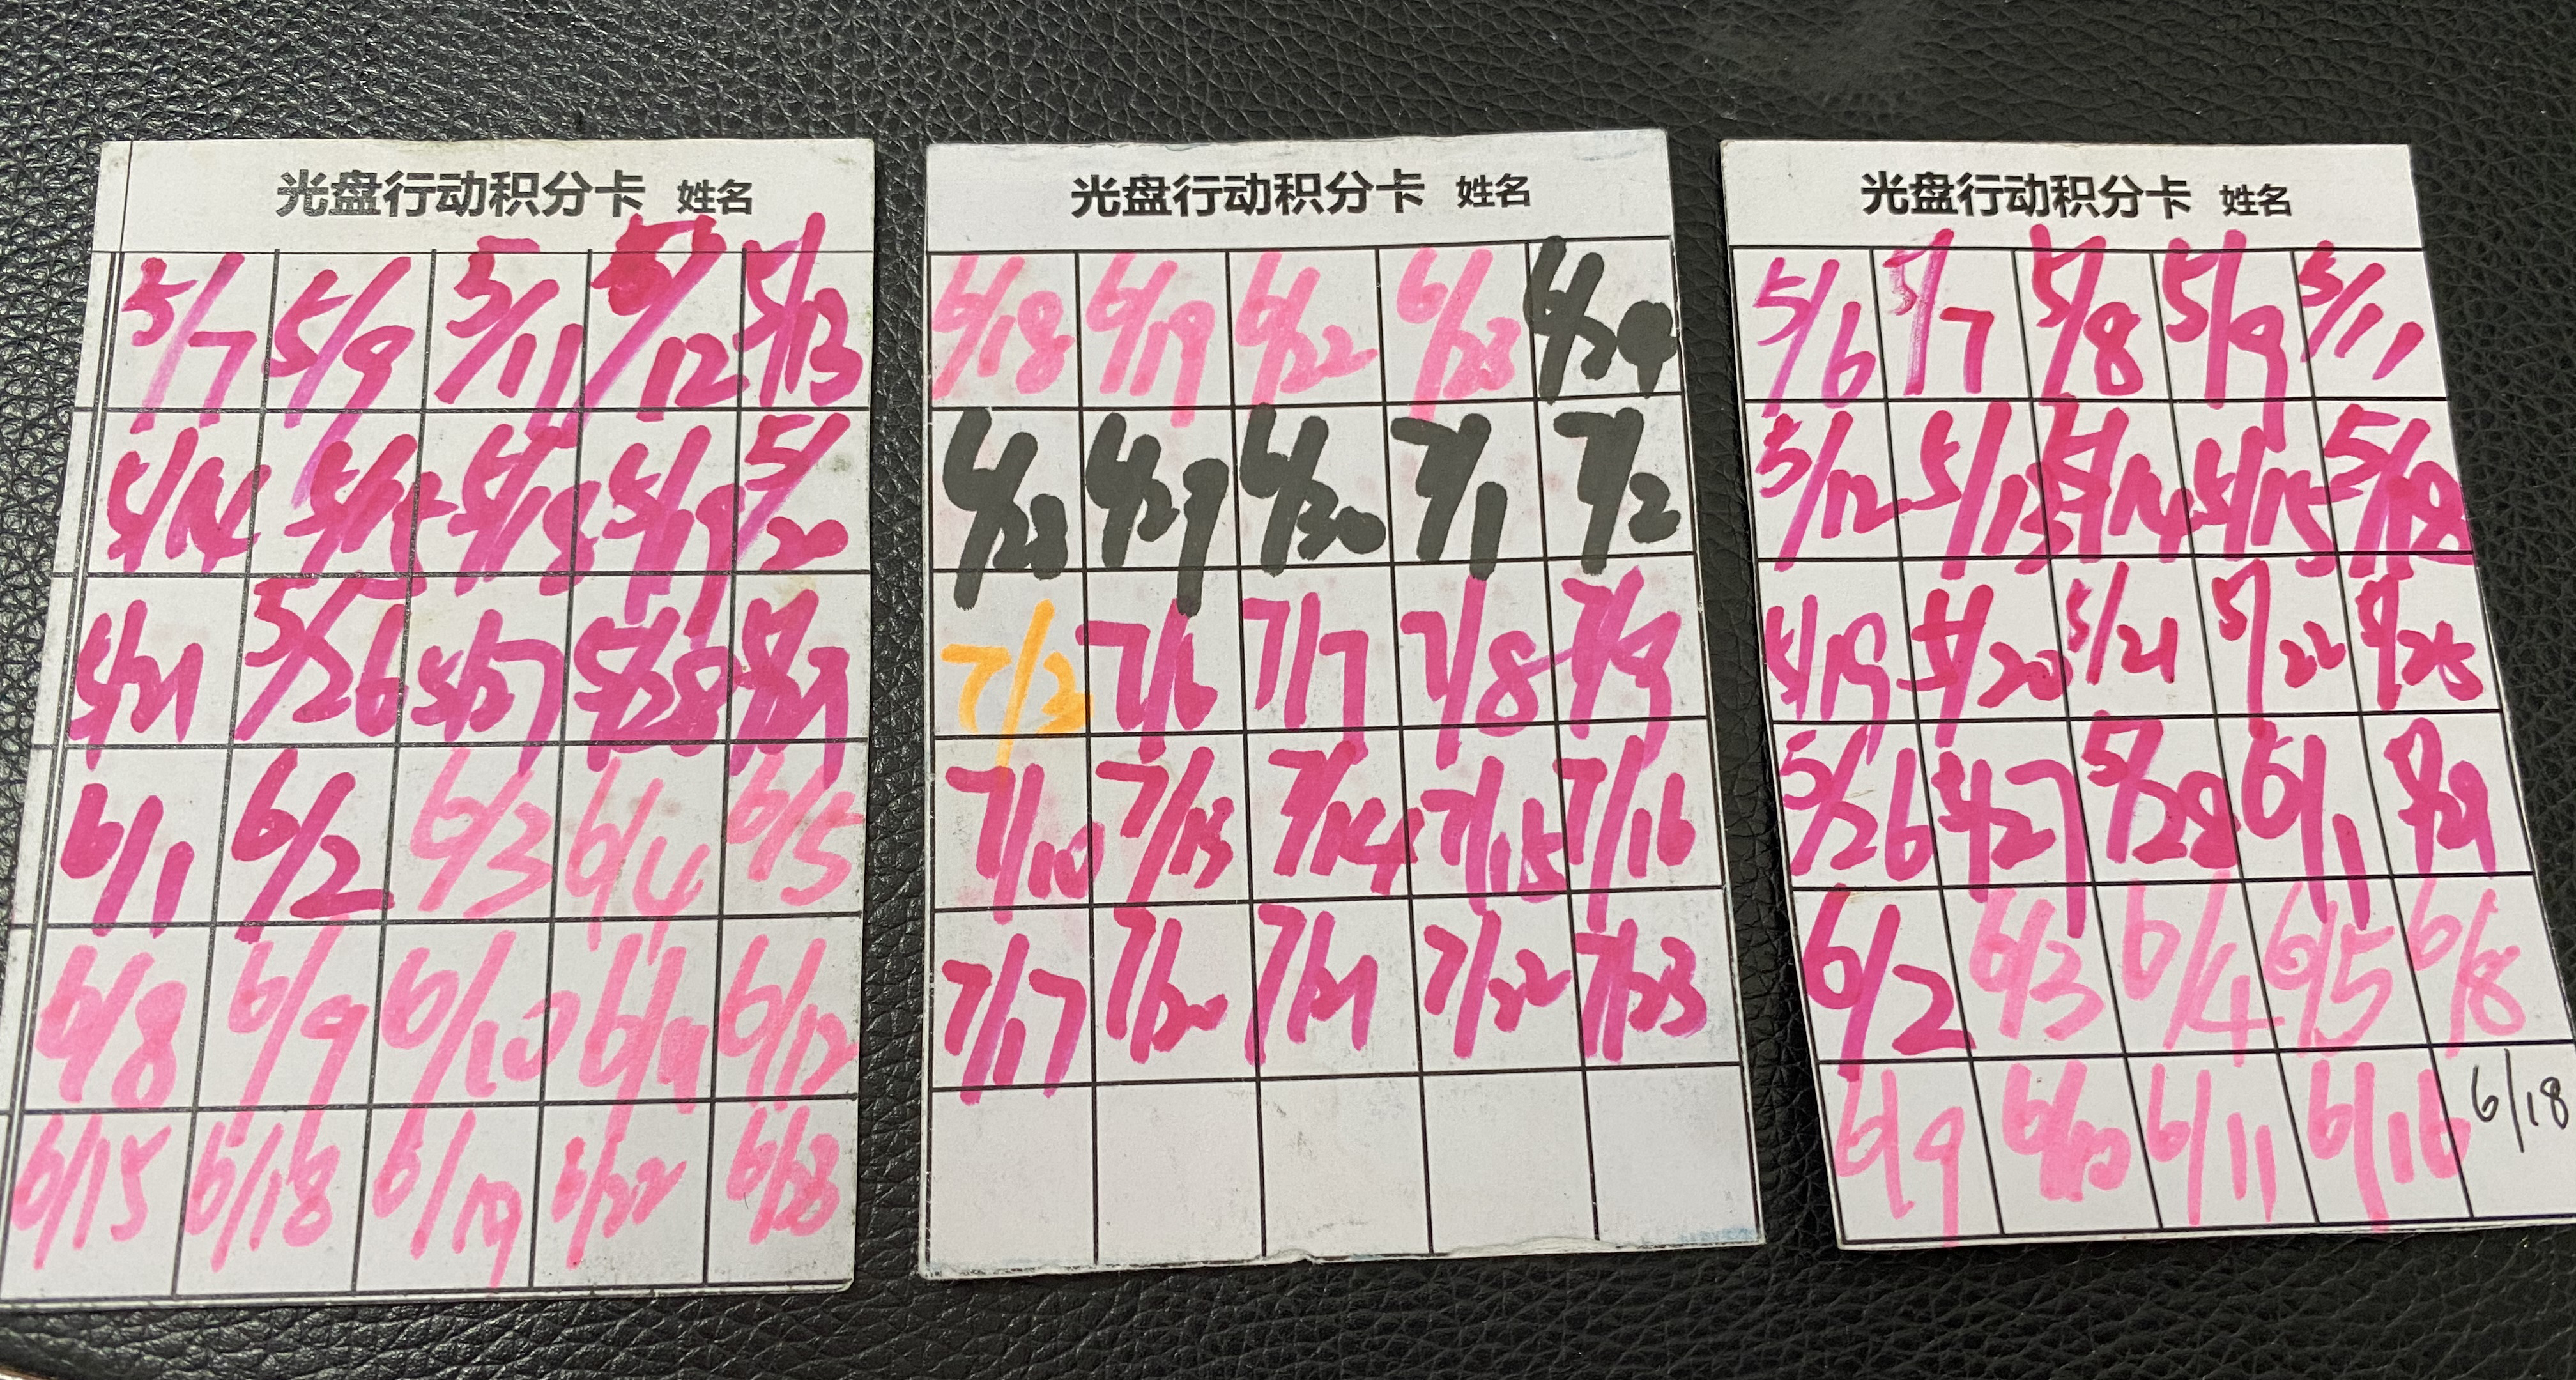 光盘行动积分卡 姓名
5/7 5/9 5/11 5/12 5/13
5/14 5/15 5/18 5/19 5/20
5/21 5/26 5/27 5/28 5/29
6/1 6/2 6/3 6/4 6/5
6/8 6/9 6/10 6/11 6/12
6/15 6/18 6/19 6/22 6/23
光盘行动积分卡 姓名
6/18 6/19 6/22 6/23 6/24
6/28 6/29 6/30 7/1 7/2
7/3 7/6 7/7 7/8 7/9
7/10 7/13 7/14 7/15 7/16
7/17 7/20 7/21 7/22 7/23
光盘行动积分卡 姓名
5/6 5/7 5/8 5/9 5/11
5/12 5/13 5/14 5/15 5/18
5/19 5/20 5/21 5/22 5/25
5/26 5/27 5/28 6/1 5/29
6/2 6/3 6/4 6/5 6/8
6/9 6/10 6/11 6/16 6/18